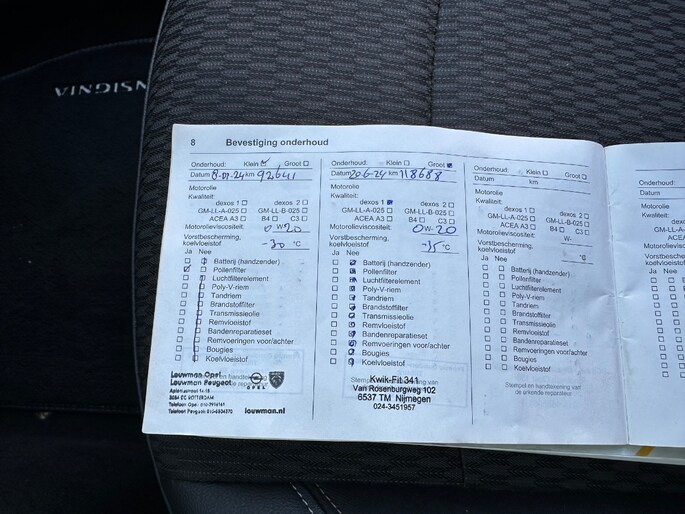 INSIGNIA
8 Bevestiging onderhoud
Onderhoud: Klein Groot
Datum km 92641
Motorolie
Kwaliteit:
dexos 1 dexos 2
GM-LL-A-025 GM-LL-B-025
ACEA A3 B4 C3
Motorolieviscositeit: 0 W 20
Vorstbescherming,
koelvloeistof -30 °C
Ja Nee
Batterij (handzender)
Pollenfilter
Luchtfilterelement
Poly-V-riem
Tandriem
Brandstoffilter
Transmissieolie
Remvloeistof
Bandenreparatieset
Remvoeringen voor/achter
Bougies
Koelvloeistof
Louwman Opel
Louwman Peugeot
OPEL
louwman.nl
Onderhoud: Klein Groot
Datum 20-6-24 km 118688
Motorolie
Kwaliteit:
dexos 1 dexos 2
GM-LL-A-025 GM-LL-B-025
ACEA A3 B4 C3
Motorolieviscositeit: 0W-20
Vorstbescherming,
koelvloeistof -35 °C
Ja Nee
Batterij (handzender)
Pollenfilter
Luchtfilterelement
Poly-V-riem
Tandriem
Brandstoffilter
Transmissieolie
Remvloeistof
Bandenreparatieset
Remvoeringen voor/achter
Bougies
Koelvloeistof
Kwik-Fit 341
Van Rosenburgweg 102
6537 TM Nijmegen
024-3451957
Onderhoud: Klein Groot
Datum km
Motorolie
Kwaliteit:
dexos 1 dexos 2
GM-LL-A-025 GM-LL-B-025
ACEA A3 B4 C3
Motorolieviscositeit: W-
Vorstbescherming,
koelvloeistof °C
Ja Nee
Batterij (handzender)
Pollenfilter
Luchtfilterelement
Poly-V-riem
Tandriem
Brandstoffilter
Transmissieolie
Remvloeistof
Bandenreparatieset
Remvoeringen voor/achter
Bougies
Koelvloeistof
Stempel en handtekening van
de erkende reparateur
Onderhoud:
Datum
Motorolie
Kwaliteit:
GM-LL-A-
ACEA
Motorolieviscositeit
Vorstbescherming,
koelvloeistof
Ja Nee